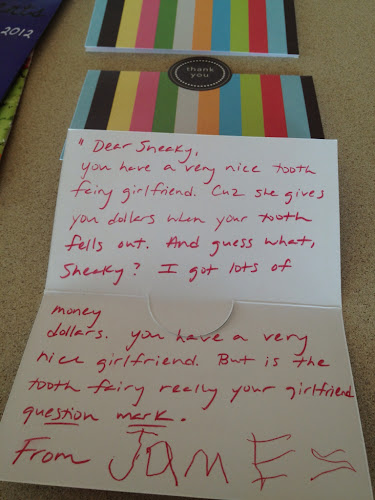 2012
thank
you
"Dear Sneaky,
you have a very nice tooth
fairy girlfriend. Cuz she gives
you dollars when your tooth
fells out. And guess what,
Sneaky? I got lots of
money
dollars. you have a very
nice girlfriend. But is the
tooth fairy really your girlfriend
question mark.
From JAMES